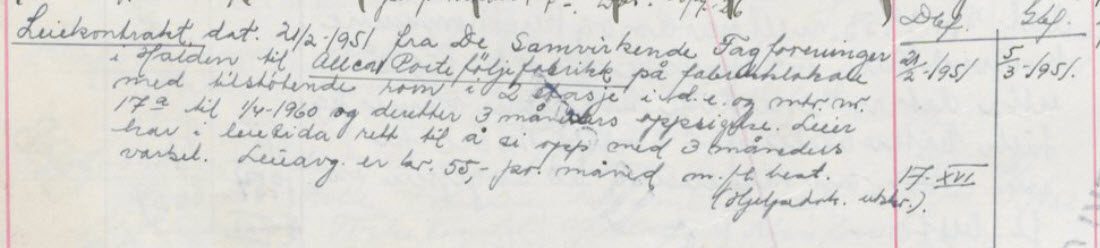 Dbf. Gbf.
Leiekontrakt, dat. 21/2-1951 fra De Samvirkende Fagforeninger
i Halden til Porteføljefabrikk på fabrikklokale 21/2-1951 5/3-1951.
med tilstøtende rom i 2 etasje i d.e. og mtr. nr.
17a til 1/4-1960 og deretter 3 måneders oppsigelse. Leier
har i leietida rett til å si opp med 3 måneders
varsel. Leieavg. er kr. 55,- pr. måned m.fl. best. 17. XVI
(Hjelpedok. utskr.).